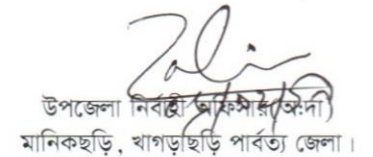 উপজেলা নির্বাহী অফিসার(অঃদাঃ)
মানিকছড়ি, খাগড়াছড়ি পার্বত্য জেলা।